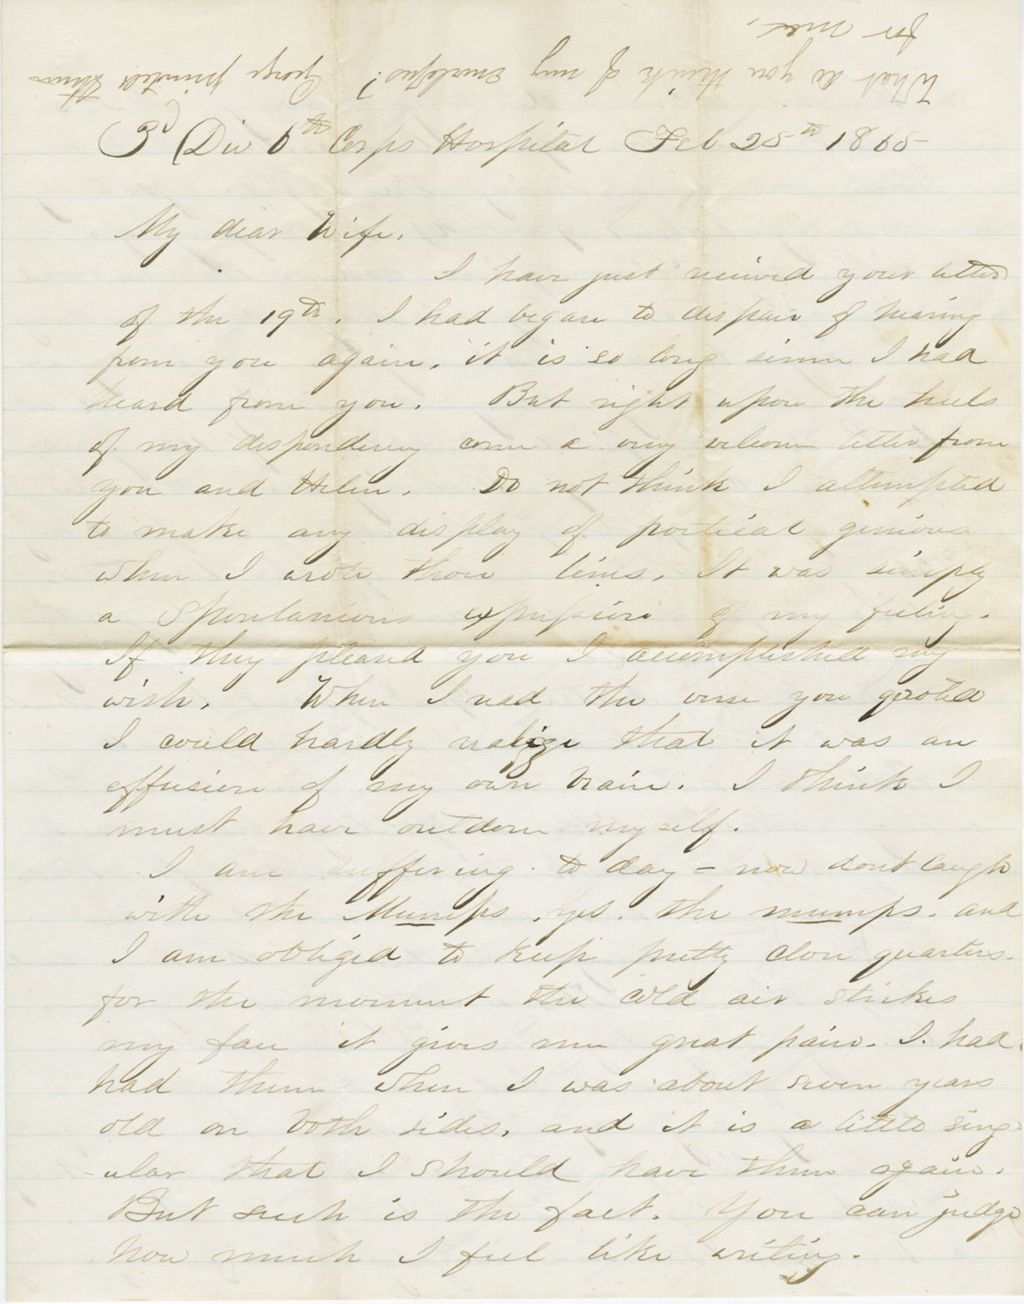 What do you think of my envelopes? George printed them
for me.
3d Div 6th Corps Hospital Feb 25th 1865
My dear Wife.
I have just received your letter
of the 19th. I had began to despair of hearing
from you again, it is so long since I had
heard from you. But right upon the heels
of my despondency come a very welcom letter from
you and Helen. Do not think I attempted
to make any display of poetical genious
when I wrote those lines. It was simply
a spontaneous expression of my feeling.
If they pleased you I accomplished my
wish. When I read the verse you qouted
I could hardly realize that it was an
effusion of my own brain. I think I
must have outdone myself.
I am suffering to day - now dont laugh
with the Mumps, yes. the mumps. and
I am obliged to keep pretty close quarters.
for the moment the cold air strikes
my face it gives me great pain. I had
had them when I was about seven years
old on both sides, and it is a little sing
-ular that I should have them again.
But such is the fact. You can judge
how much I feel like writing.